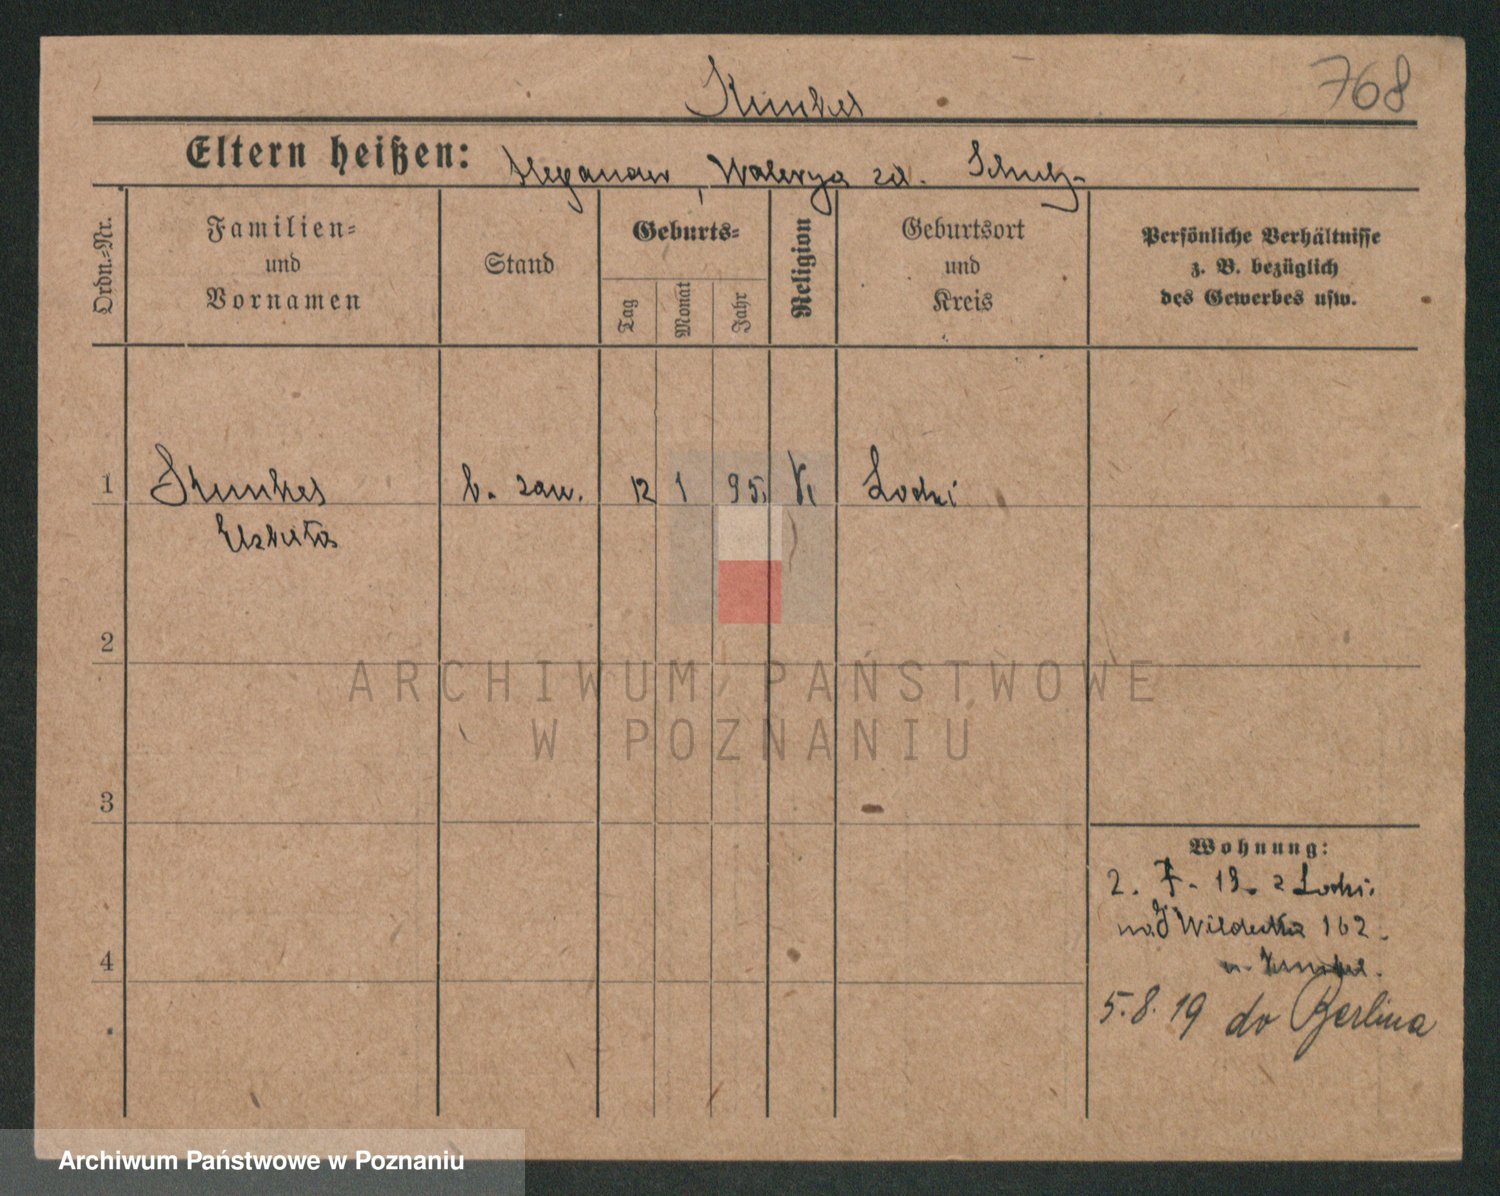 Kunkel
768
Eltern heißen: Alexander, Walerya zd. Schulz
Ordn.=Nr.
Familien=
und
Vornamen
Stand
Geburts=
Tag
Monat
Jahr
Religion
Geburtsort
und
Kreis
Persönliche Verhältnisse
z. B. bezüglich
des Gewerbes usw.
1 Kunkel b. zaw. 12 1 95. Lodzi
Elzbieta
2
3
4
Wohnung:
2. 7. 19. z Lodzi.
Wildecka 162.
Kunkel.
5.8.19 do Berlina
ARCHIWUM PAŃSTWOWE
W POZNANIU
Archiwum Państwowe w Poznaniu